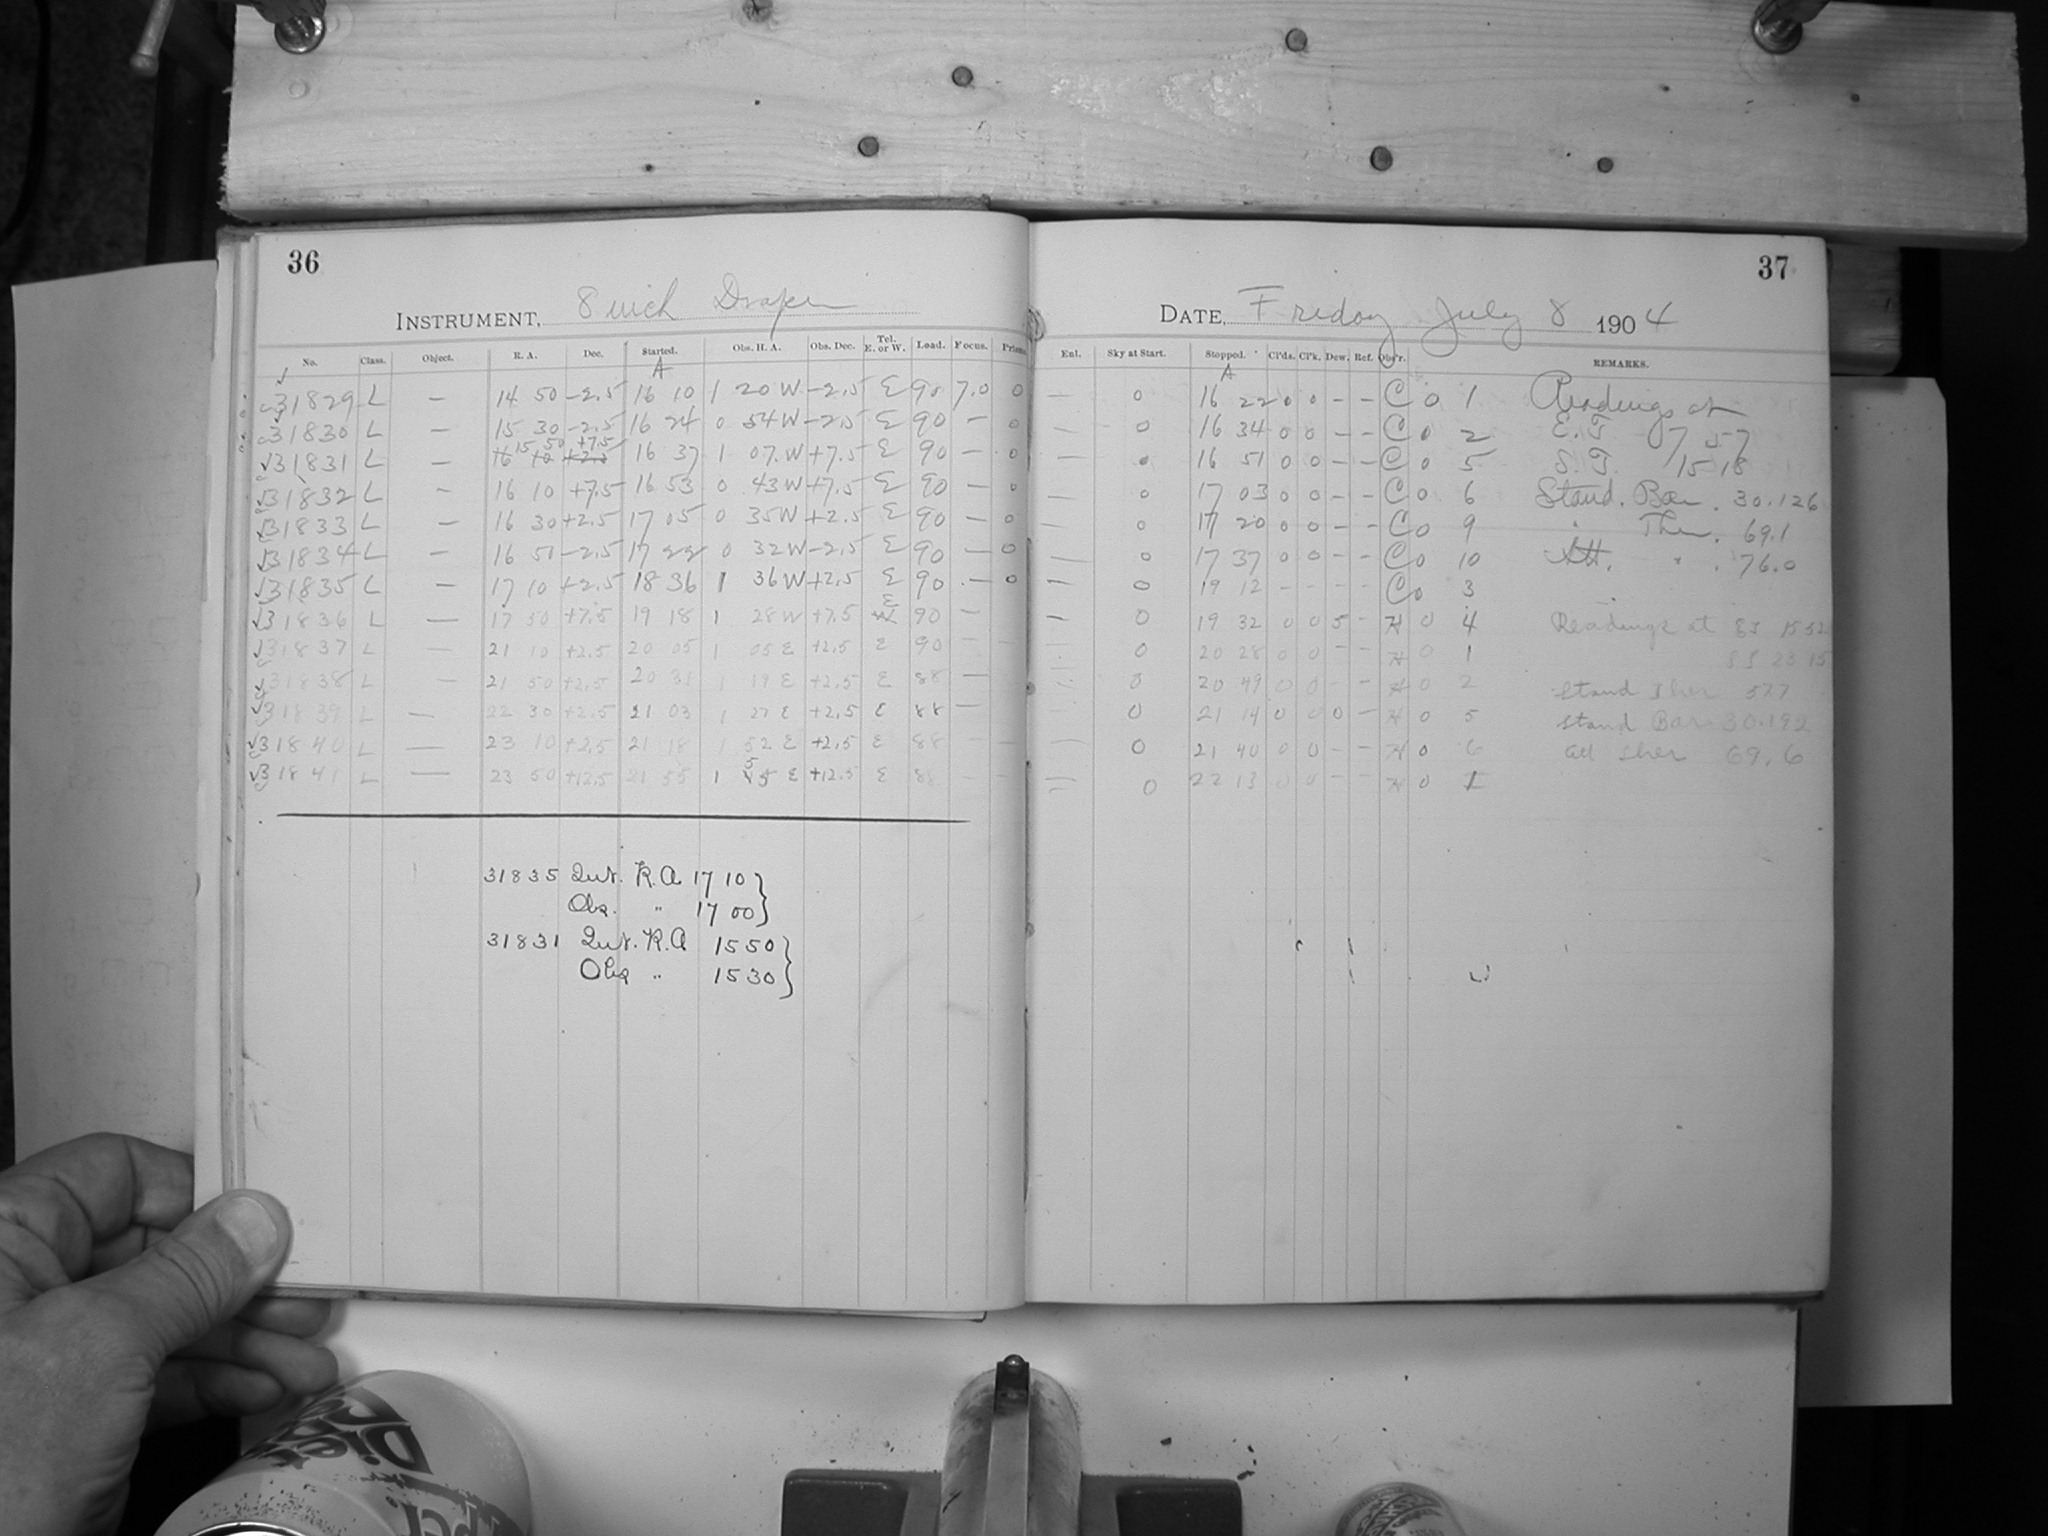 36
INSTRUMENT, 8 inch Draper
No. Class. Object. R. A. Dec. Started. Obs. H. A. Obs. Dec. Tel. E. or W. Load. Focus. Prism
A
31829 L — 14 50 -2.5 16 10 1 20 W -2.5 E 90 7.0 0
31830 L — 15 30 -2.5 16 24 0 54 W -2.5 E 90 — 0
15 50 +7.5
31831 L — 16 10 +2.5 16 37 1 07 W +7.5 E 90 — 0
31832 L — 16 10 +7.5 16 53 0 43 W +7.5 E 90 — 0
31833 L — 16 30 +2.5 17 05 0 35 W +2.5 E 90 — 0
31834 L — 16 50 -2.5 17 22 0 32 W -2.5 E 90 — 0
31835 L — 17 10 +2.5 18 36 1 36 W +2.5 E 90 — 0
31836 L — 17 50 +7.5 19 18 1 28 W +7.5 W E 90 —
31837 L — 21 10 +2.5 20 05 1 05 E +2.5 E 90 — —
31838 L — 21 50 +2.5 20 31 1 19 E +2.5 E 88 —
31839 L — 22 30 +2.5 21 03 1 27 E +2.5 E 88 —
31840 L — 23 10 +2.5 21 18 1 52 E +2.5 E 88 — —
31841 L — 23 50 +12.5 21 55 1 55 E +12.5 E 88 — —
31835 Int. R.A. 17 10
Obs. " 17 00
31831 Int. R.A 15 50
Obs " 15 30
37
DATE, Friday July 8 1904
Enl. Sky at Start. Stopped. Cl'ds. Cl'k. Dew. Ref. Obs'r. REMARKS.
A
— 0 16 22 0 0 - - Co 1 Readings at
— 0 16 34 0 0 - - Co 2 E.T 7 57
— 0 16 51 0 0 - - Co 5 S.T. 15 18
— 0 17 03 0 0 - - Co 6 Stand. Bar. 30.126
— 0 17 20 0 0 - - Co 9 " Ther. 69.1
— 0 17 37 0 0 - - Co 10 Att. " . 76.0
— 0 19 12 - - - - Co 3
— 0 19 32 0 0 5 - H 0 4 Readings at ES 15 52
— 0 20 28 0 0 - - H 0 1 SS 23 15
— 0 20 49 0 0 - - H 0 2 Stand Ther 57.7
— 0 21 14 0 0 0 - H 0 5 Stand Bar 30.192
— 0 21 40 0 0 - - H 0 6 att ther 69.6
— 0 22 13 0 0 - - H 0 1
Diet